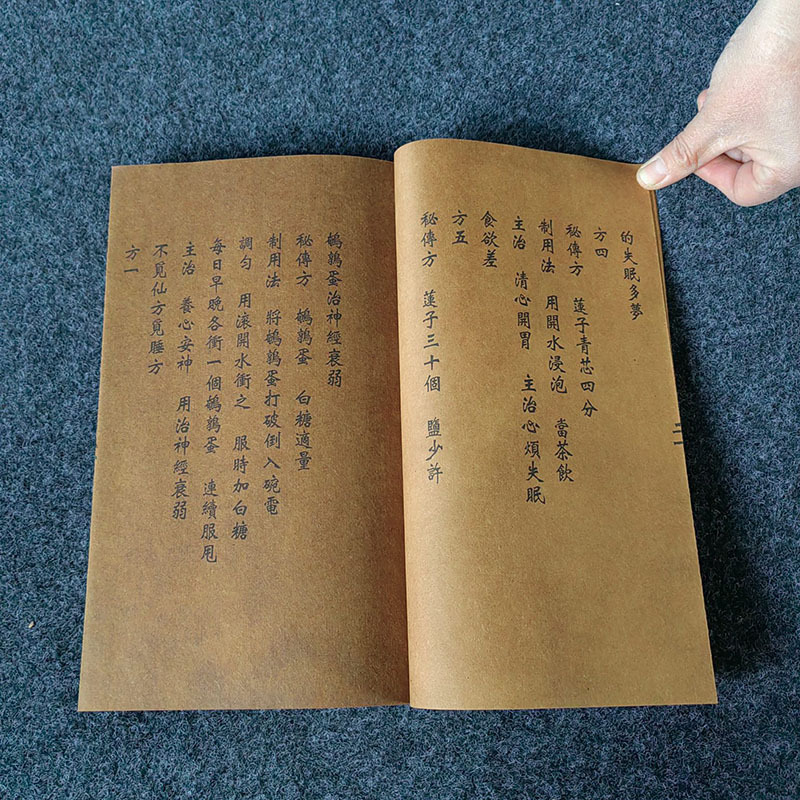 的失眠多夢
方四
秘傳方 蓮子青芯四分
制用法 用開水浸泡 當茶飲
主治 清心開胃 主治心煩失眠
食欲差
方五
秘傳方 蓮子三十個 鹽少許
鵪鶉蛋治神經衰弱
秘傳方 鵪鶉蛋 白糖適量
制用法 將鵪鶉蛋打破倒入碗電
調勻 用滚開水衝之 服時加白糖
每日早晚各衝一個鵪鶉蛋 連續服用
主治 養心安神 用治神經衰弱
不覓仙方覓睡方
方一